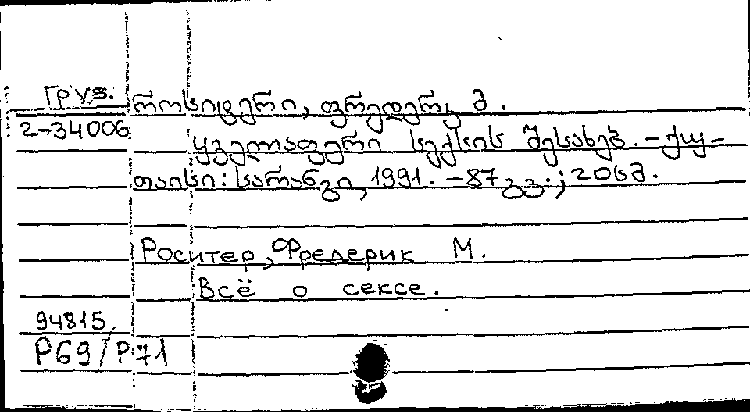 Груз. როსიტერი, ფრედერიკ მ.
2-34006 ყველაფერი სექსის შესახებ. - ქუ-
თაისი: სარანგი, 1991. - 87 გვ.; 20სმ.
Роситер, Фредерик М.
Всё о сексе.
94815,
Р69/Р71